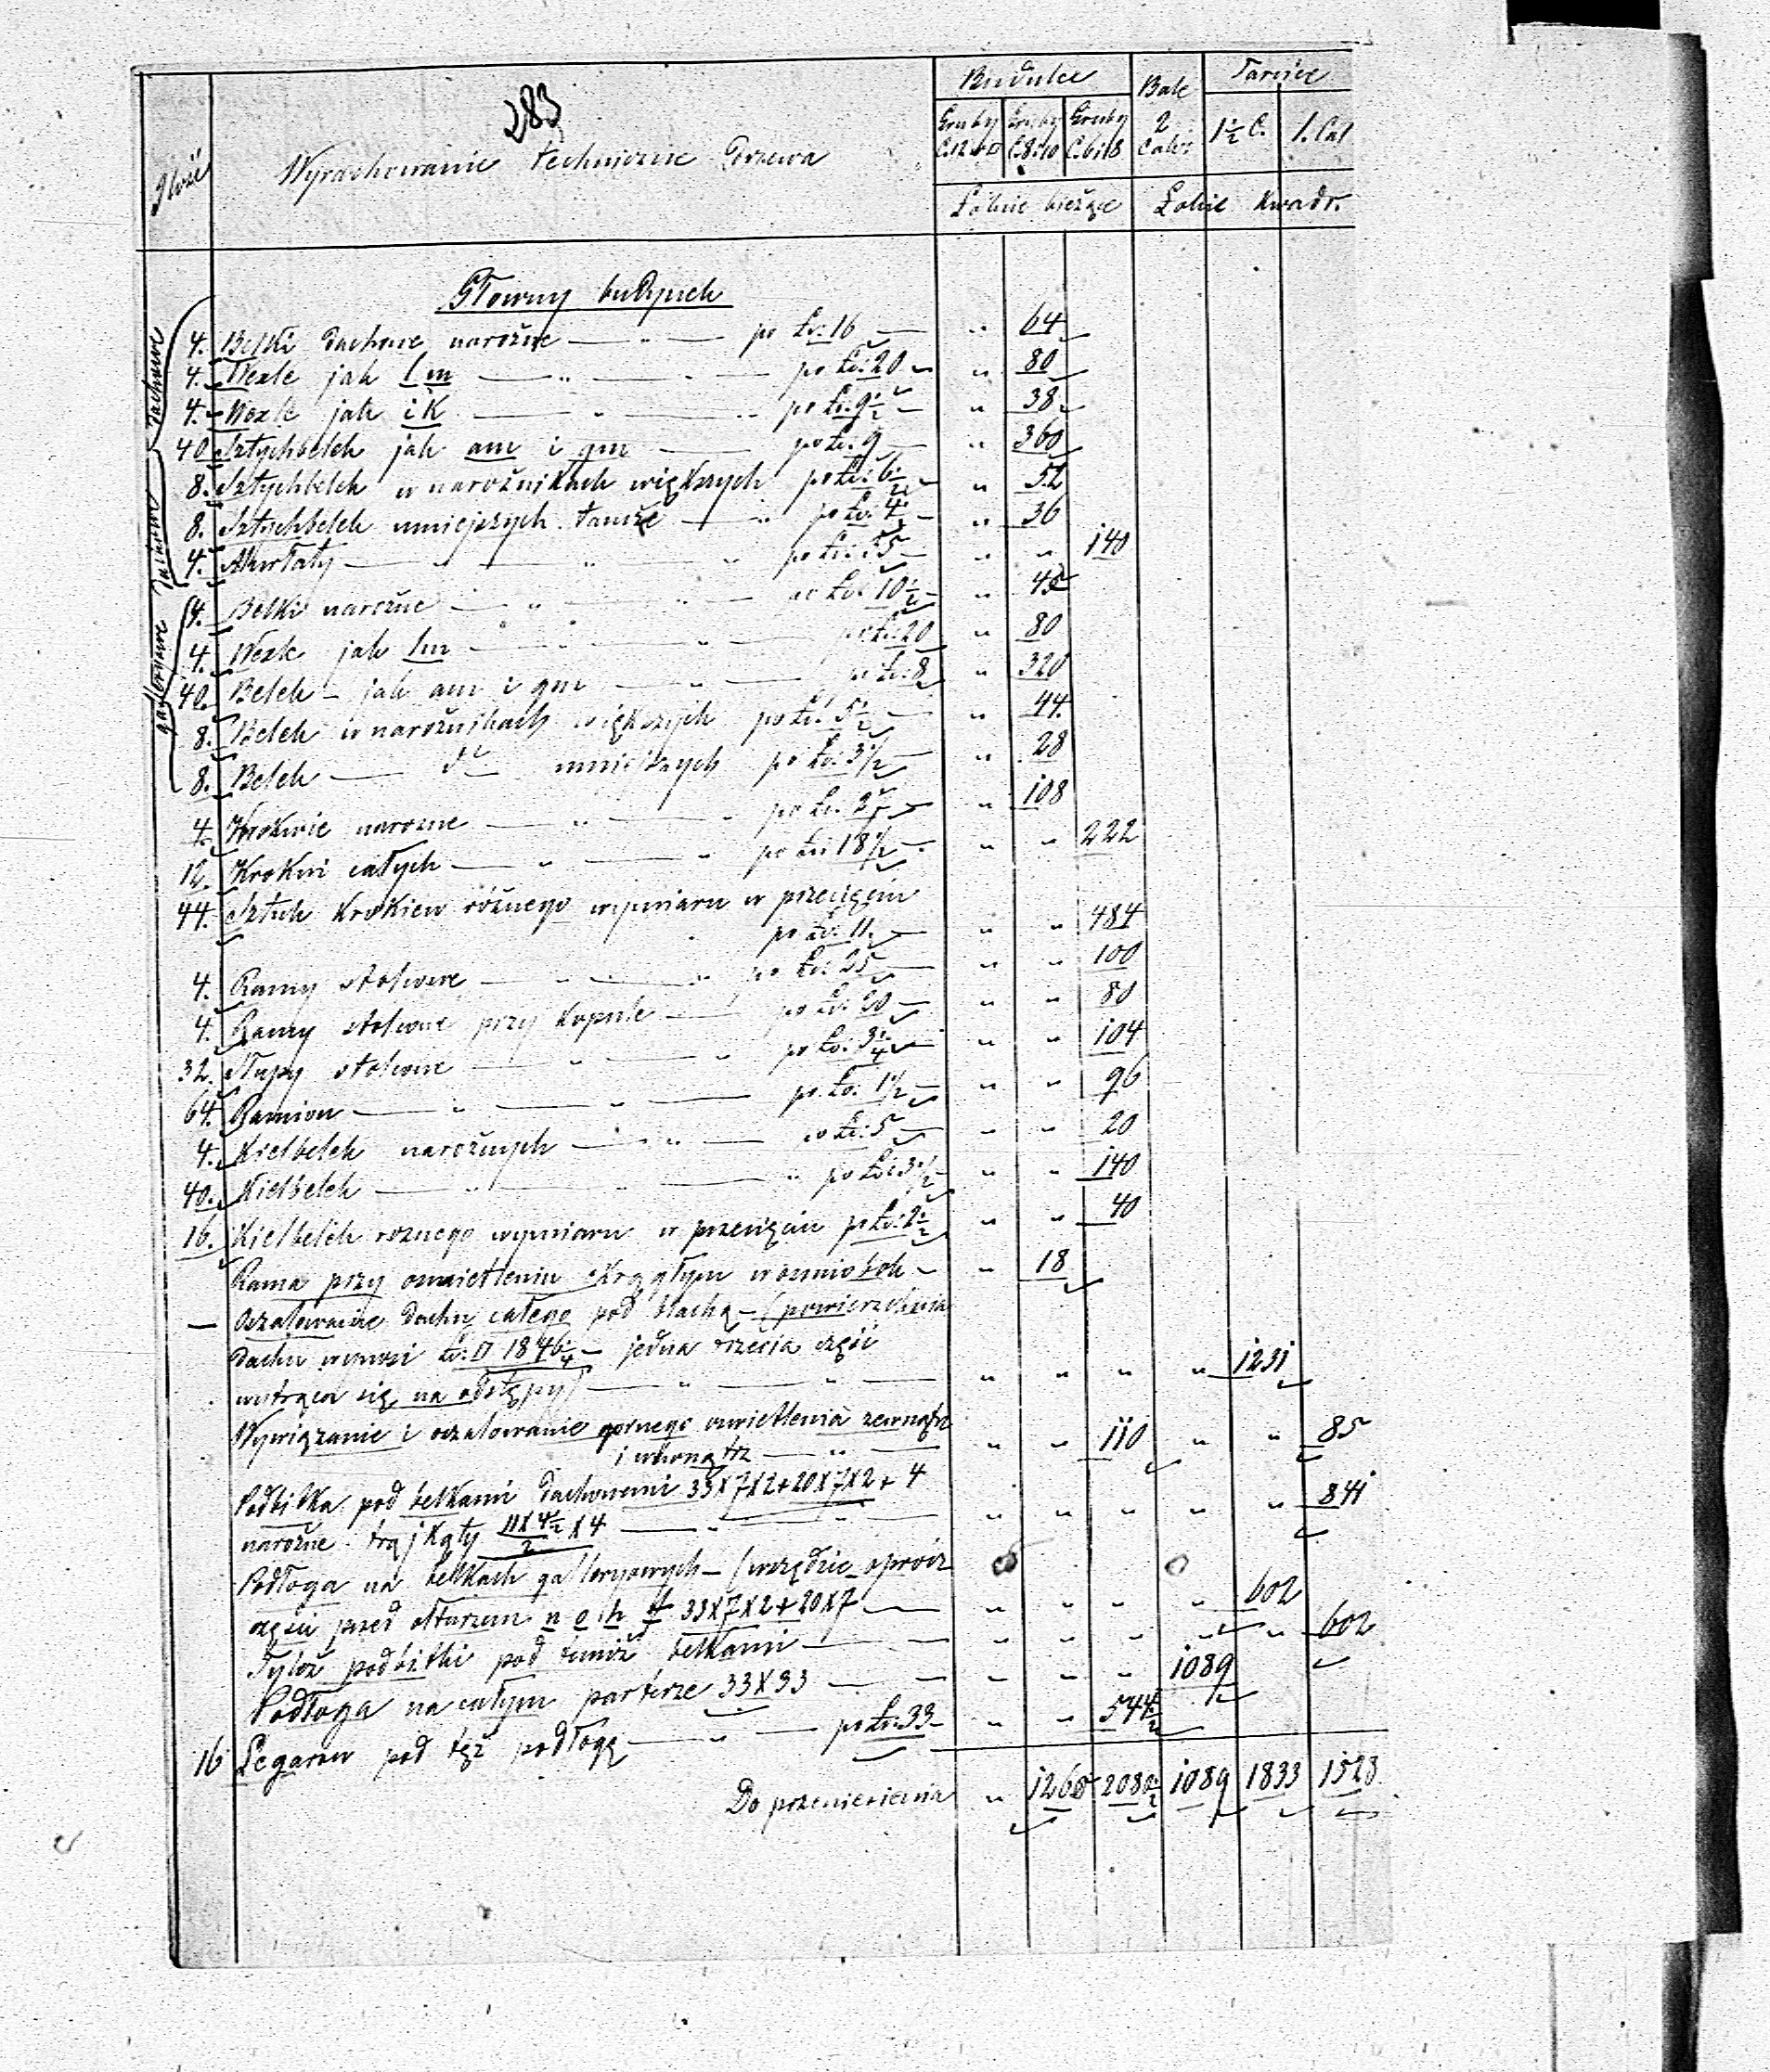 283
Ilość Wyrachowanie techniczne Drzewa Budulec Bale Tarcice
Gruby C.12 i 10 Gruby C.8:10 Gruby C.6:18 2 calow. 1½ C. 1. Cal
Łokcie bieżące Łokcie kwadr.
Głowny budynek
dachowe
galeryowe
4. Belki dachowe narożne — „ — po Łr: 16 — „ 64
4. Wexle jak l m — „ — po Łr: 20 — „ 80
4. Wexle jak i k — „ — po Łr: 9½ — „ 38
40 Sztychbelek jak am i gm — po Łr. 9 — „ 360
8. Sztychbelek w narożnikach większych po Łr: 6½ — „ 52
8. Sztychbelek mniejszych tamże — „ po Łr: 4½ — „ 36
4. Murłaty — „ „ „ po Łr: 35 — „ „ 140
4. Belki narożne — „ — „ — po Łr: 10½ — „ 42
4. Wexle jak lm — „ — po Łr: 20 „ 80
40. Belek — jak am i gm — „ — po Łr: 8 „ 320
8. Belek w narożnikach większych po Łr: 5½ — „ 44.
8. Belek — dto mniejszych po Łr: 3½ — „ 28
4. Krokwie narozne — „ — „ po Łr. 27 — „ 108
12. Krokwi całych — „ — „ po Łr: 18½ — „ „ 222
44. Sztuk krokiew różnego wymiaru w przecięciu
po Łr: 11. — „ „ 484
4. Ramy stolcowe — „ — „ po Łr: 25 — „ „ 100
4. Ramy stolcowe przy kopule — po Łr: 20 — „ „ 80
32. Słupy stolcowe — „ — „ po Łr: 3¼ — „ „ 104
64. Ramion — „ — „ — po Łr. 1½ — „ „ 96
4. Kielbelek narożnych — „ — po Łr: 5 — „ „ 20
40. Kielbelek — „ — „ po Łr: 3½ — „ „ 140
16. Kielbelek roznego wymiaru w przecięciu po Łr: 2½ „ „ 40
Rama przy oswietleniu okrągłym w osmiobok — „ 18
— Oszalowanie dachu całego pod blachą — (powierzchnia
dachu wynosi Łr: □ 1846¼ — jedna trzecia część
wytrąca się na odstępy) — „ — „ — „ „ „ „ 1231
Wywiązanie i oszalowanie gornego oswietlenia zewnątrz
i wewnątrz — „ — „ „ 110 „ „ 85
Podbitka pod belkami dachowemi 33x7x2+20x7x2+4
narożne trojkąty 11x4½/2 x4 — „ — „ — „ „ „ „ „ 841
Podłoga na belkach galeryowych — (wszędzie oprocz
części przed ołtarzem n o h f 33x7x2+20x7 — „ „ „ „ 602
Tyleż podbitki pod temiż belkami — „ „ „ „ „ 602
Podłoga na całym parterze 33x33 — „ „ „ 1089
16 Legarow pod tęż podłogę — „ — po Łr: 33 — „ „ 544½
Do przeniesienia „ 1268 2080½ 1089 1833 1528